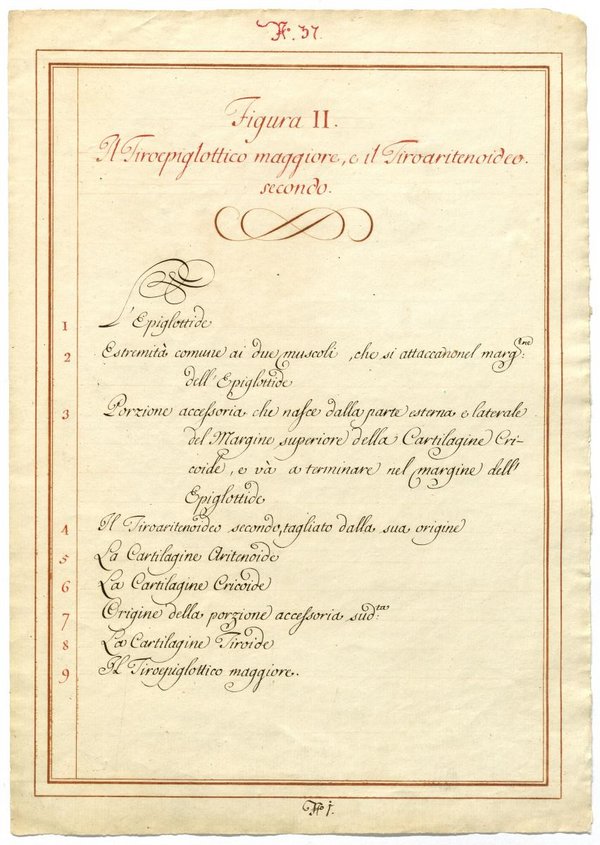 N.º 37.
Figura II.
Il Tiroepiglottico maggiore, e il Tiroaritenoideo
secondo.
1 L'Epiglottide
2 Estremità comune ai due muscoli, che si attaccano nel marg:ine
dell'Epiglottide
3 Porzione accessoria che nasce dalla parte esterna e laterale
del Margine superiore della Cartilagine Cri-
coide, e và a terminare nel margine dell'
Epiglottide
4 Il Tiroaritenoideo secondo, tagliato dalla sua origine
5 La Cartilagine Aritenoide
6 La Cartilagine Cricoide
7 Origine della porzione accessoria sud:ta
8 La Cartilagine Tiroide
9 Il Tiroepiglottico maggiore.